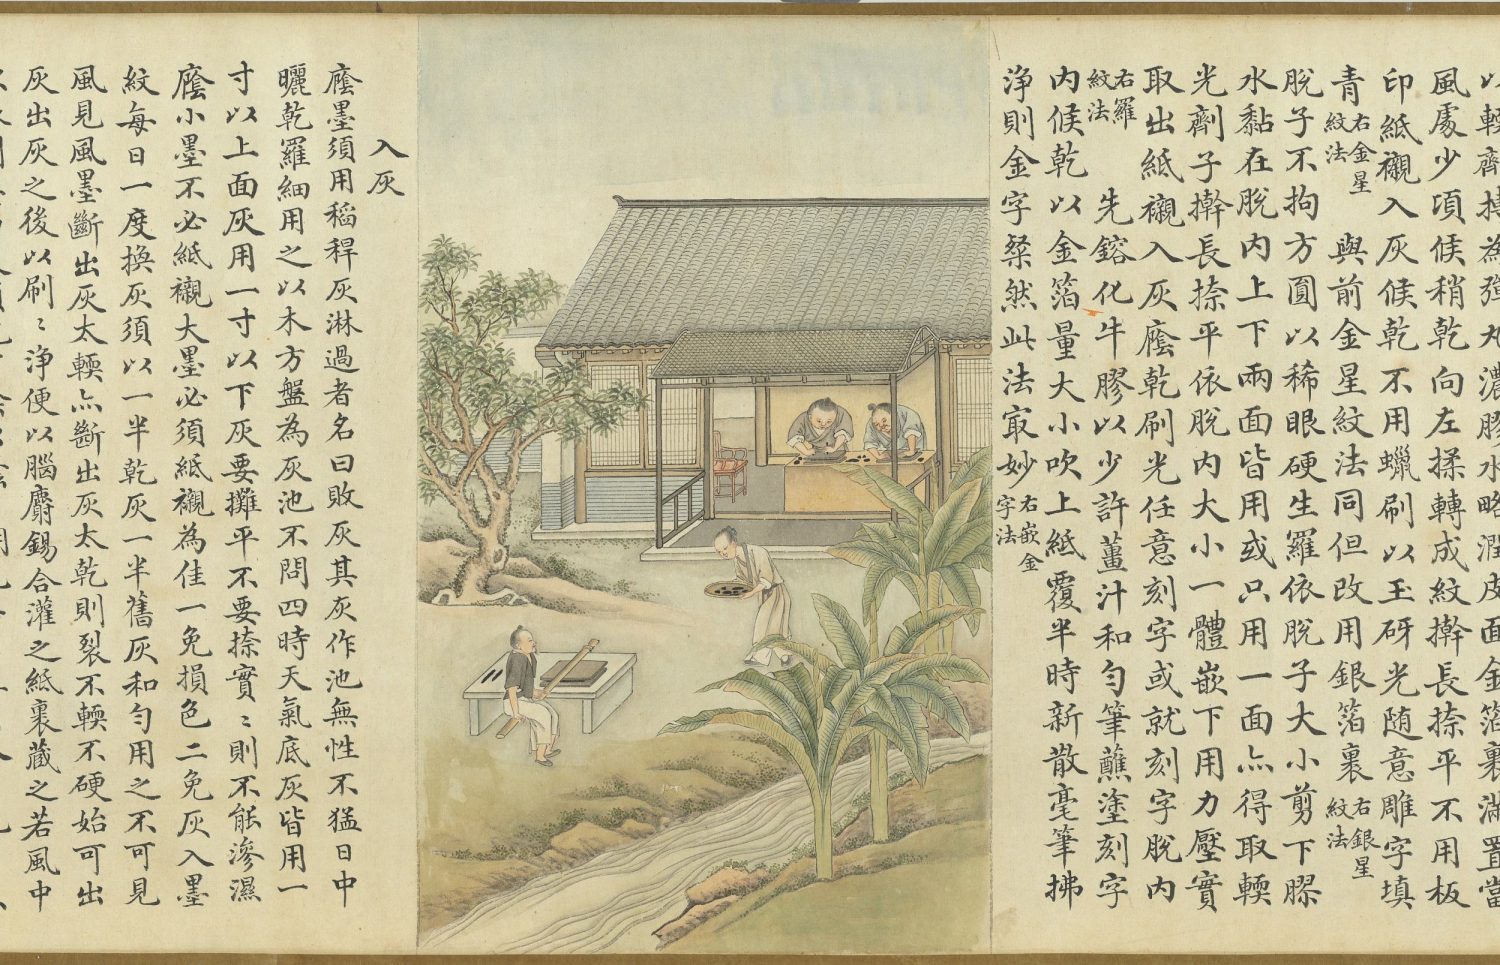 以輭劑摶為彈丸濃膠水略潤皮面金箔裹滿置當
風處少頃候稍乾向左揉轉成紋擀長捺平不用板
印紙襯入灰候乾不用蠟刷以玉砑光随意雕字填
青右金星紋法 與前金星紋法同但改用銀箔裹右銀星紋法
脫子不拘方圓以稀眼硬生羅依脫子大小剪下膠
水黏在脫內上下兩面皆用或只用一面亦得取輭
光劑子擀長捺平依脫內大小一體嵌下用力壓實
取出紙襯入灰䕃乾刷光任意刻字或就刻字脫內
右羅紋法 先鎔化牛膠以少許薑汁和勻筆蘸塗刻字
內候乾以金箔量大小吹上紙覆半時新散毫筆拂
浄則金字粲然此法㝡妙右嵌金字法
入灰
䕃墨須用稻稈灰淋過者名曰敗灰其灰作池無性不猛日中
曬乾羅細用之以木方盤為灰池不問四時天氣底灰皆用一
寸以上面灰用一寸以下灰要攤平不要捺實〻則不能滲濕
䕃小墨不必紙襯大墨必須紙襯為佳一免損色二免灰入墨
紋每日一度換灰須以一半乾灰一半舊灰和勻用之不可見
風見風墨斷出灰太輭亦斷出灰太乾則裂不輭不硬始可出
灰出灰之後以刷〻浄便以腦麝錫合灌之紙裹藏之若風中